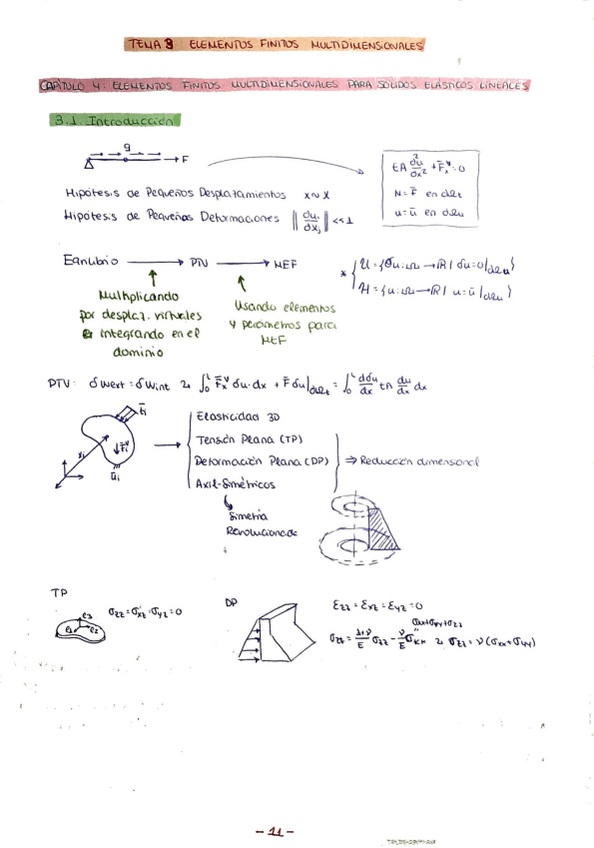 TEMA 3 ELEMENTOS FINITOS MULTIDIMENSIONALES
CAPÍTULO 4: ELEMENTOS FINITOS MULTIDIMENSIONALES PARA SÓLIDOS ELÁSTICOS LINEALES
3.1. Introducción
q
F
EA ∂²u/∂x² + F̄ₓᵛ = 0
N = F̄ en ∂Ωt
u = ū en ∂Ωu
Hipótesis de Pequeños Desplazamientos x ~ X
Hipótesis de Pequeñas Deformaciones ‖ du_i/dx_j ‖ << 1
Equilibrio → PTV → MEF
Multiplicando por desplaz. virtuales e integrando en el dominio
Usando elementos y parámetros para MEF
* { U = {δu: Ω → ℝ | δu = 0|∂Ωu}
H = {u: Ω → ℝ | u = ū|∂Ωu}
PTV: δWext = δWint ∫₀ᴸ F̄ₓᵛ δu·dx + F̄ δu|∂Ωt = ∫₀ᴸ dδu/dx EA du/dx dx
t̄i
F̄iᵛ
xi
ūi
Elasticidad 3D
Tensión Plana (TP)
Deformación Plana (DP)
Axil-Simétricos
⇒ Reducción dimensional
Simetría
Revolucionada
TP
e3
e2
e1
σzz = σxz = σyz = 0
DP
εzz = εxz = εyz = 0
σxx + σyy + σzz
εzz = (1+ν)/E σzz − ν/E σkk σzz = ν(σxx + σyy)
- 11 -